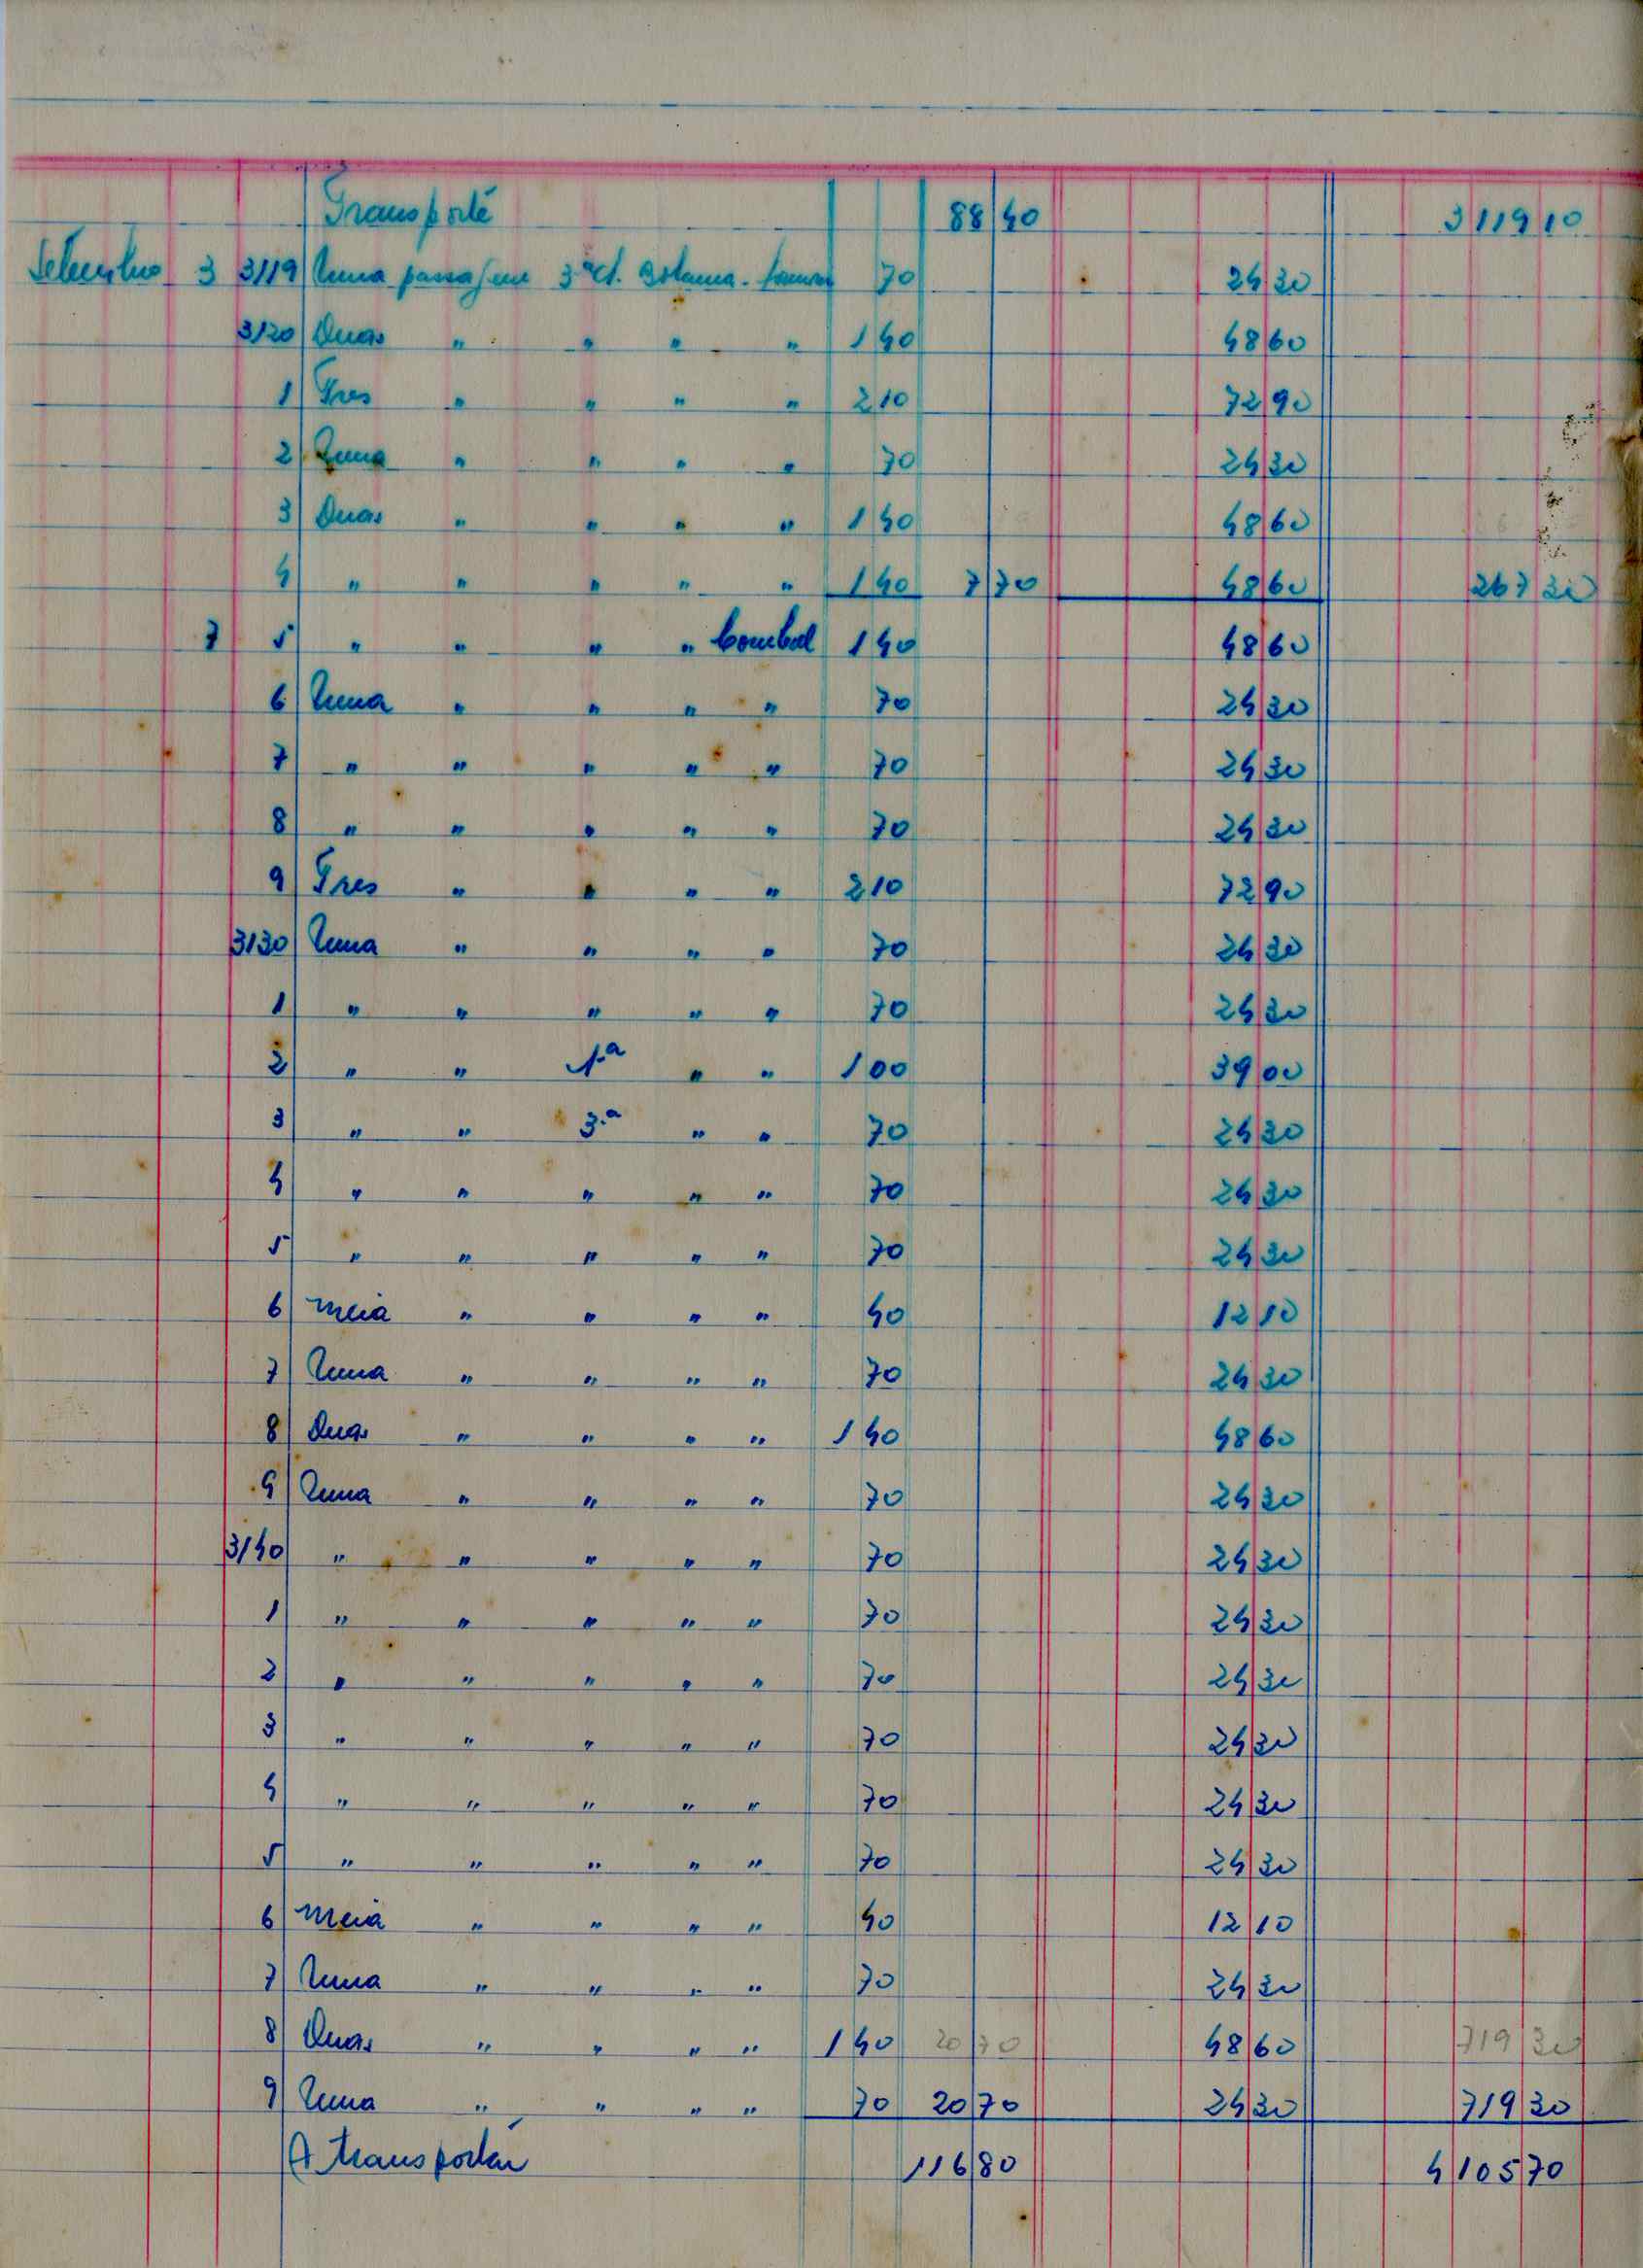 Transporte 88 40 3119 10
Setembro 3 3119 Uma passagem 3ª cl. Bolama - 70 24 30
3120 Duas " " " " 1 40 48 60
1 Tres " " " " 2 10 72 90
2 Uma " " " " 70 24 30
3 Duas " " " " 1 40 48 60
4 " " " " " 1 40 7 70 48 60 267 30
7 5 " " " " 1 40 48 60
6 Uma " " " " 70 24 30
7 " " " " " 70 24 30
8 " " " " " 70 24 30
9 Tres " " " " 2 10 72 90
3130 Uma " " " " 70 24 30
1 " " " " " 70 24 30
2 " " 1ª " " 1 00 39 00
3 " " 3.ª " " 70 24 30
4 " " " " " 70 24 30
5 " " " " " 70 24 30
6 Meia " " " " 40 12 10
7 Uma " " " " 70 24 30
8 Duas " " " " 1 40 48 60
9 Uma " " " " 70 24 30
3140 " " " " " 70 24 30
1 " " " " " 70 24 30
2 " " " " " 70 24 30
3 " " " " " 70 24 30
4 " " " " " 70 24 30
5 " " " " " 70 24 30
6 Meia " " " " 40 12 10
7 Uma " " " " 70 24 30
8 Duas " " " " 1 40 20 70 48 60 719 30
9 Uma " " " " 70 20 70 24 30 719 30
A transportar 116 80 4 105 70